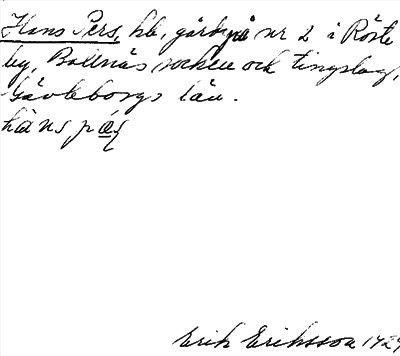 Hans Pers, hb, gårdspå nr 2 i Röste
by, Bollnäs socken och tingslag,
Gävleborgs län.
hàns pæ̣ʂ
Erik Eriksson 1929